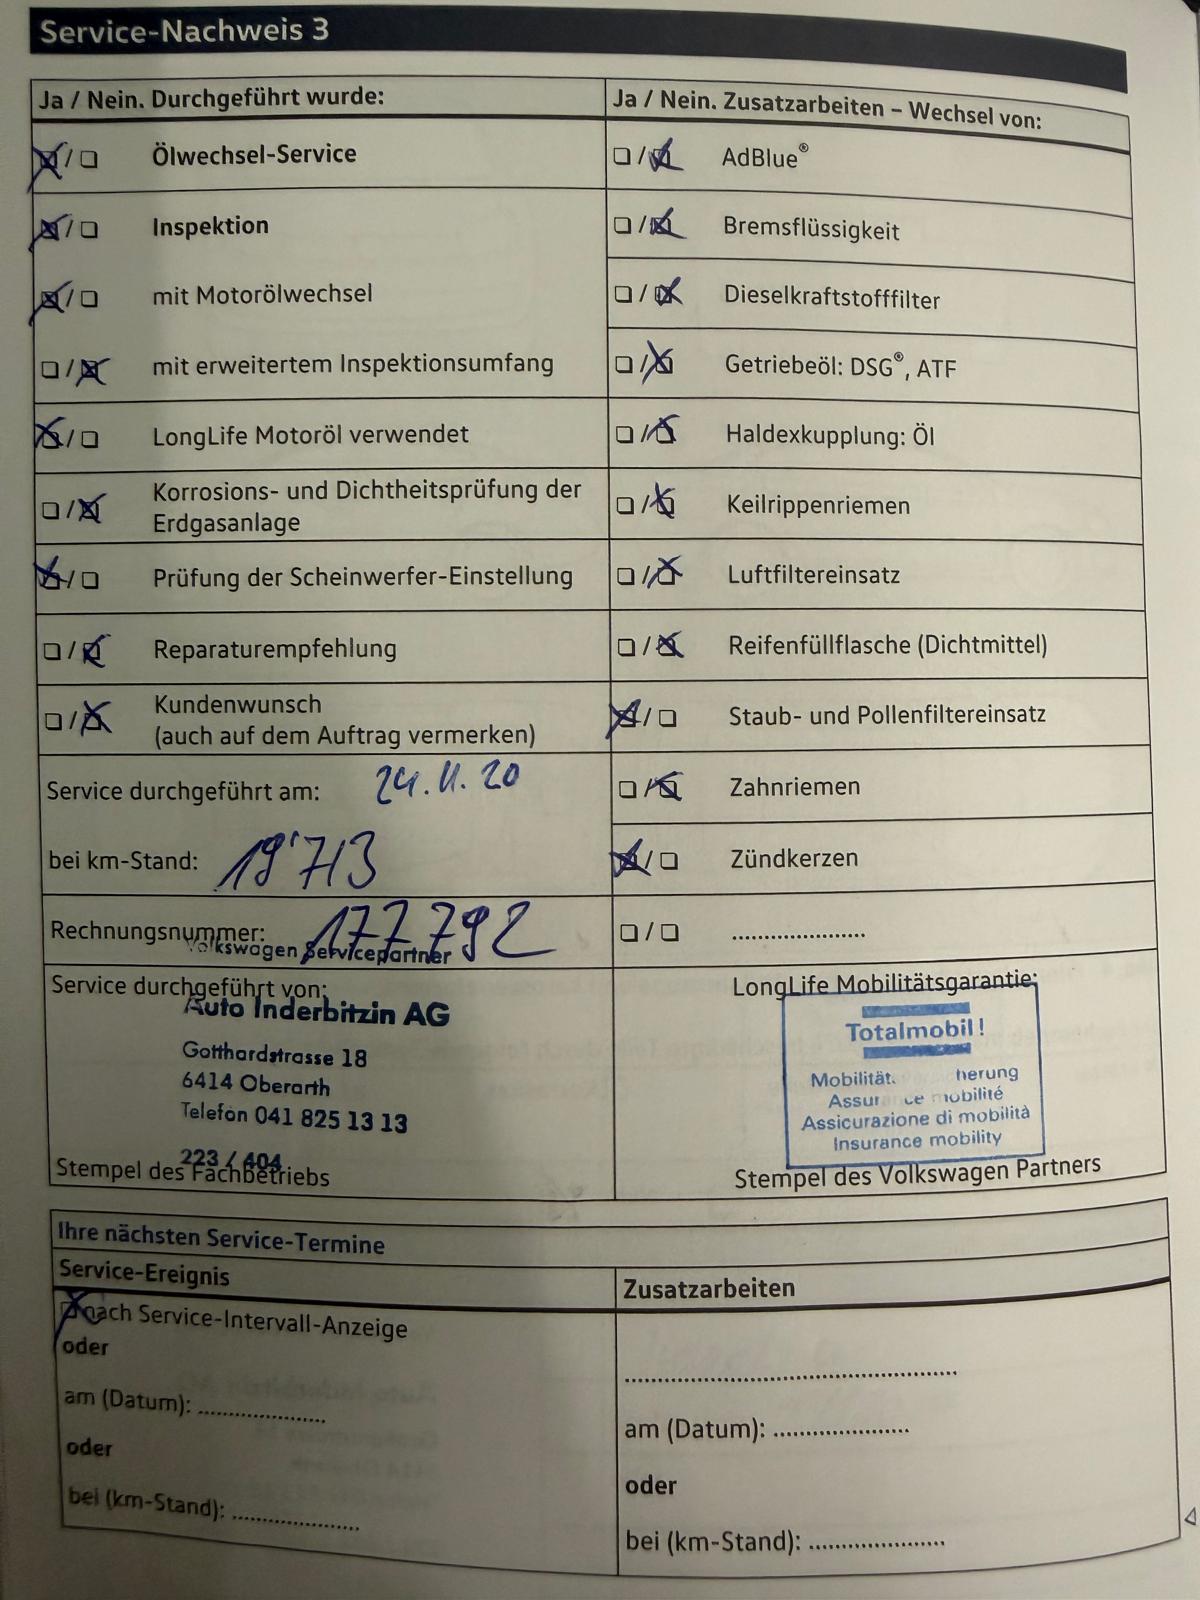 Service-Nachweis 3
Ja / Nein. Durchgeführt wurde:
☒ / ☐ Ölwechsel-Service
☒ / ☐ Inspektion
☒ / ☐ mit Motorölwechsel
☐ / ☒ mit erweitertem Inspektionsumfang
☒ / ☐ LongLife Motoröl verwendet
☐ / ☒ Korrosions- und Dichtheitsprüfung der
Erdgasanlage
☒ / ☐ Prüfung der Scheinwerfer-Einstellung
☐ / ☒ Reparaturempfehlung
☐ / ☒ Kundenwunsch
(auch auf dem Auftrag vermerken)
Service durchgeführt am: 24.11.20
bei km-Stand: 19'713
Rechnungsnummer: 177792
Volkswagen Servicepartner
Service durchgeführt von:
Auto Inderbitzin AG
Gotthardstrasse 18
6414 Oberarth
Telefon 041 825 13 13
223 / 404
Stempel des Fachbetriebs
Ja / Nein. Zusatzarbeiten – Wechsel von:
☐ / ☒ AdBlue®
☐ / ☒ Bremsflüssigkeit
☐ / ☒ Dieselkraftstofffilter
☐ / ☒ Getriebeöl: DSG®, ATF
☐ / ☒ Haldexkupplung: Öl
☐ / ☒ Keilrippenriemen
☐ / ☒ Luftfiltereinsatz
☐ / ☒ Reifenfüllflasche (Dichtmittel)
☒ / ☐ Staub- und Pollenfiltereinsatz
☐ / ☒ Zahnriemen
☒ / ☐ Zündkerzen
☐ / ☐ .....................
LongLife Mobilitätsgarantie:
Totalmobil!
Assurance mobilité
Assicurazione di mobilità
Insurance mobility
Stempel des Volkswagen Partners
Ihre nächsten Service-Termine
Service-Ereignis
☒ nach Service-Intervall-Anzeige
oder
am (Datum): ....................
oder
bei (km-Stand): ....................
Zusatzarbeiten
....................................................
am (Datum): .....................
oder
bei (km-Stand): .....................